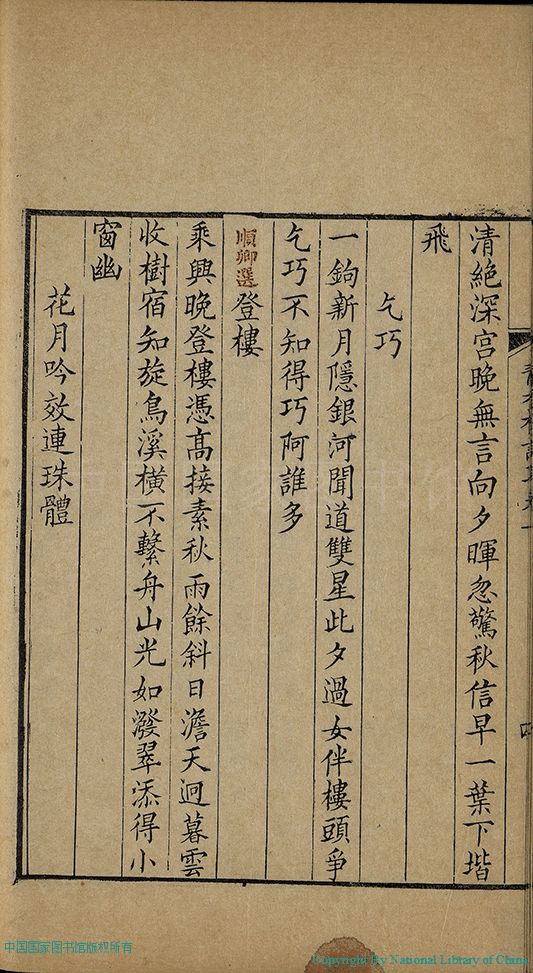 清絶深宫晚無言向夕暉忽驚秋信早一葉下堦
飛
乞巧
一鉤新月隱銀河聞道雙星此夕過女伴樓頭爭
乞巧不知得巧阿誰多
順卿選
登樓
乘興晚登樓憑高接素秋雨餘斜日澹天迥暮雲
收樹宿知旋鳥溪橫不繫舟山光如潑翠添得小
窗幽
花月吟效連珠體
中国国家图书馆版权所有
Copyright by National Library of China